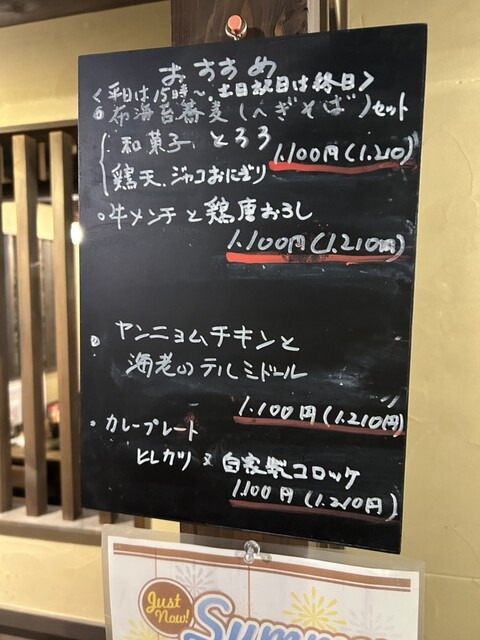 おすすめ
<平日は15時〜。土日祝日は終日>
布海苔蕎麦(へぎそば)セット
和菓子、とろろ
1.100円(1.210)
鶏天、ジャコおにぎり
。牛メンチと鶏唐おろし
1.100円(1.210円)
ヤンニョムチキンと
海老のテルミドール
1.100円(1.210円)
カレープレート
ヒレカツ又自家製コロッケ
1.100円(1.210円)
Just
Now!